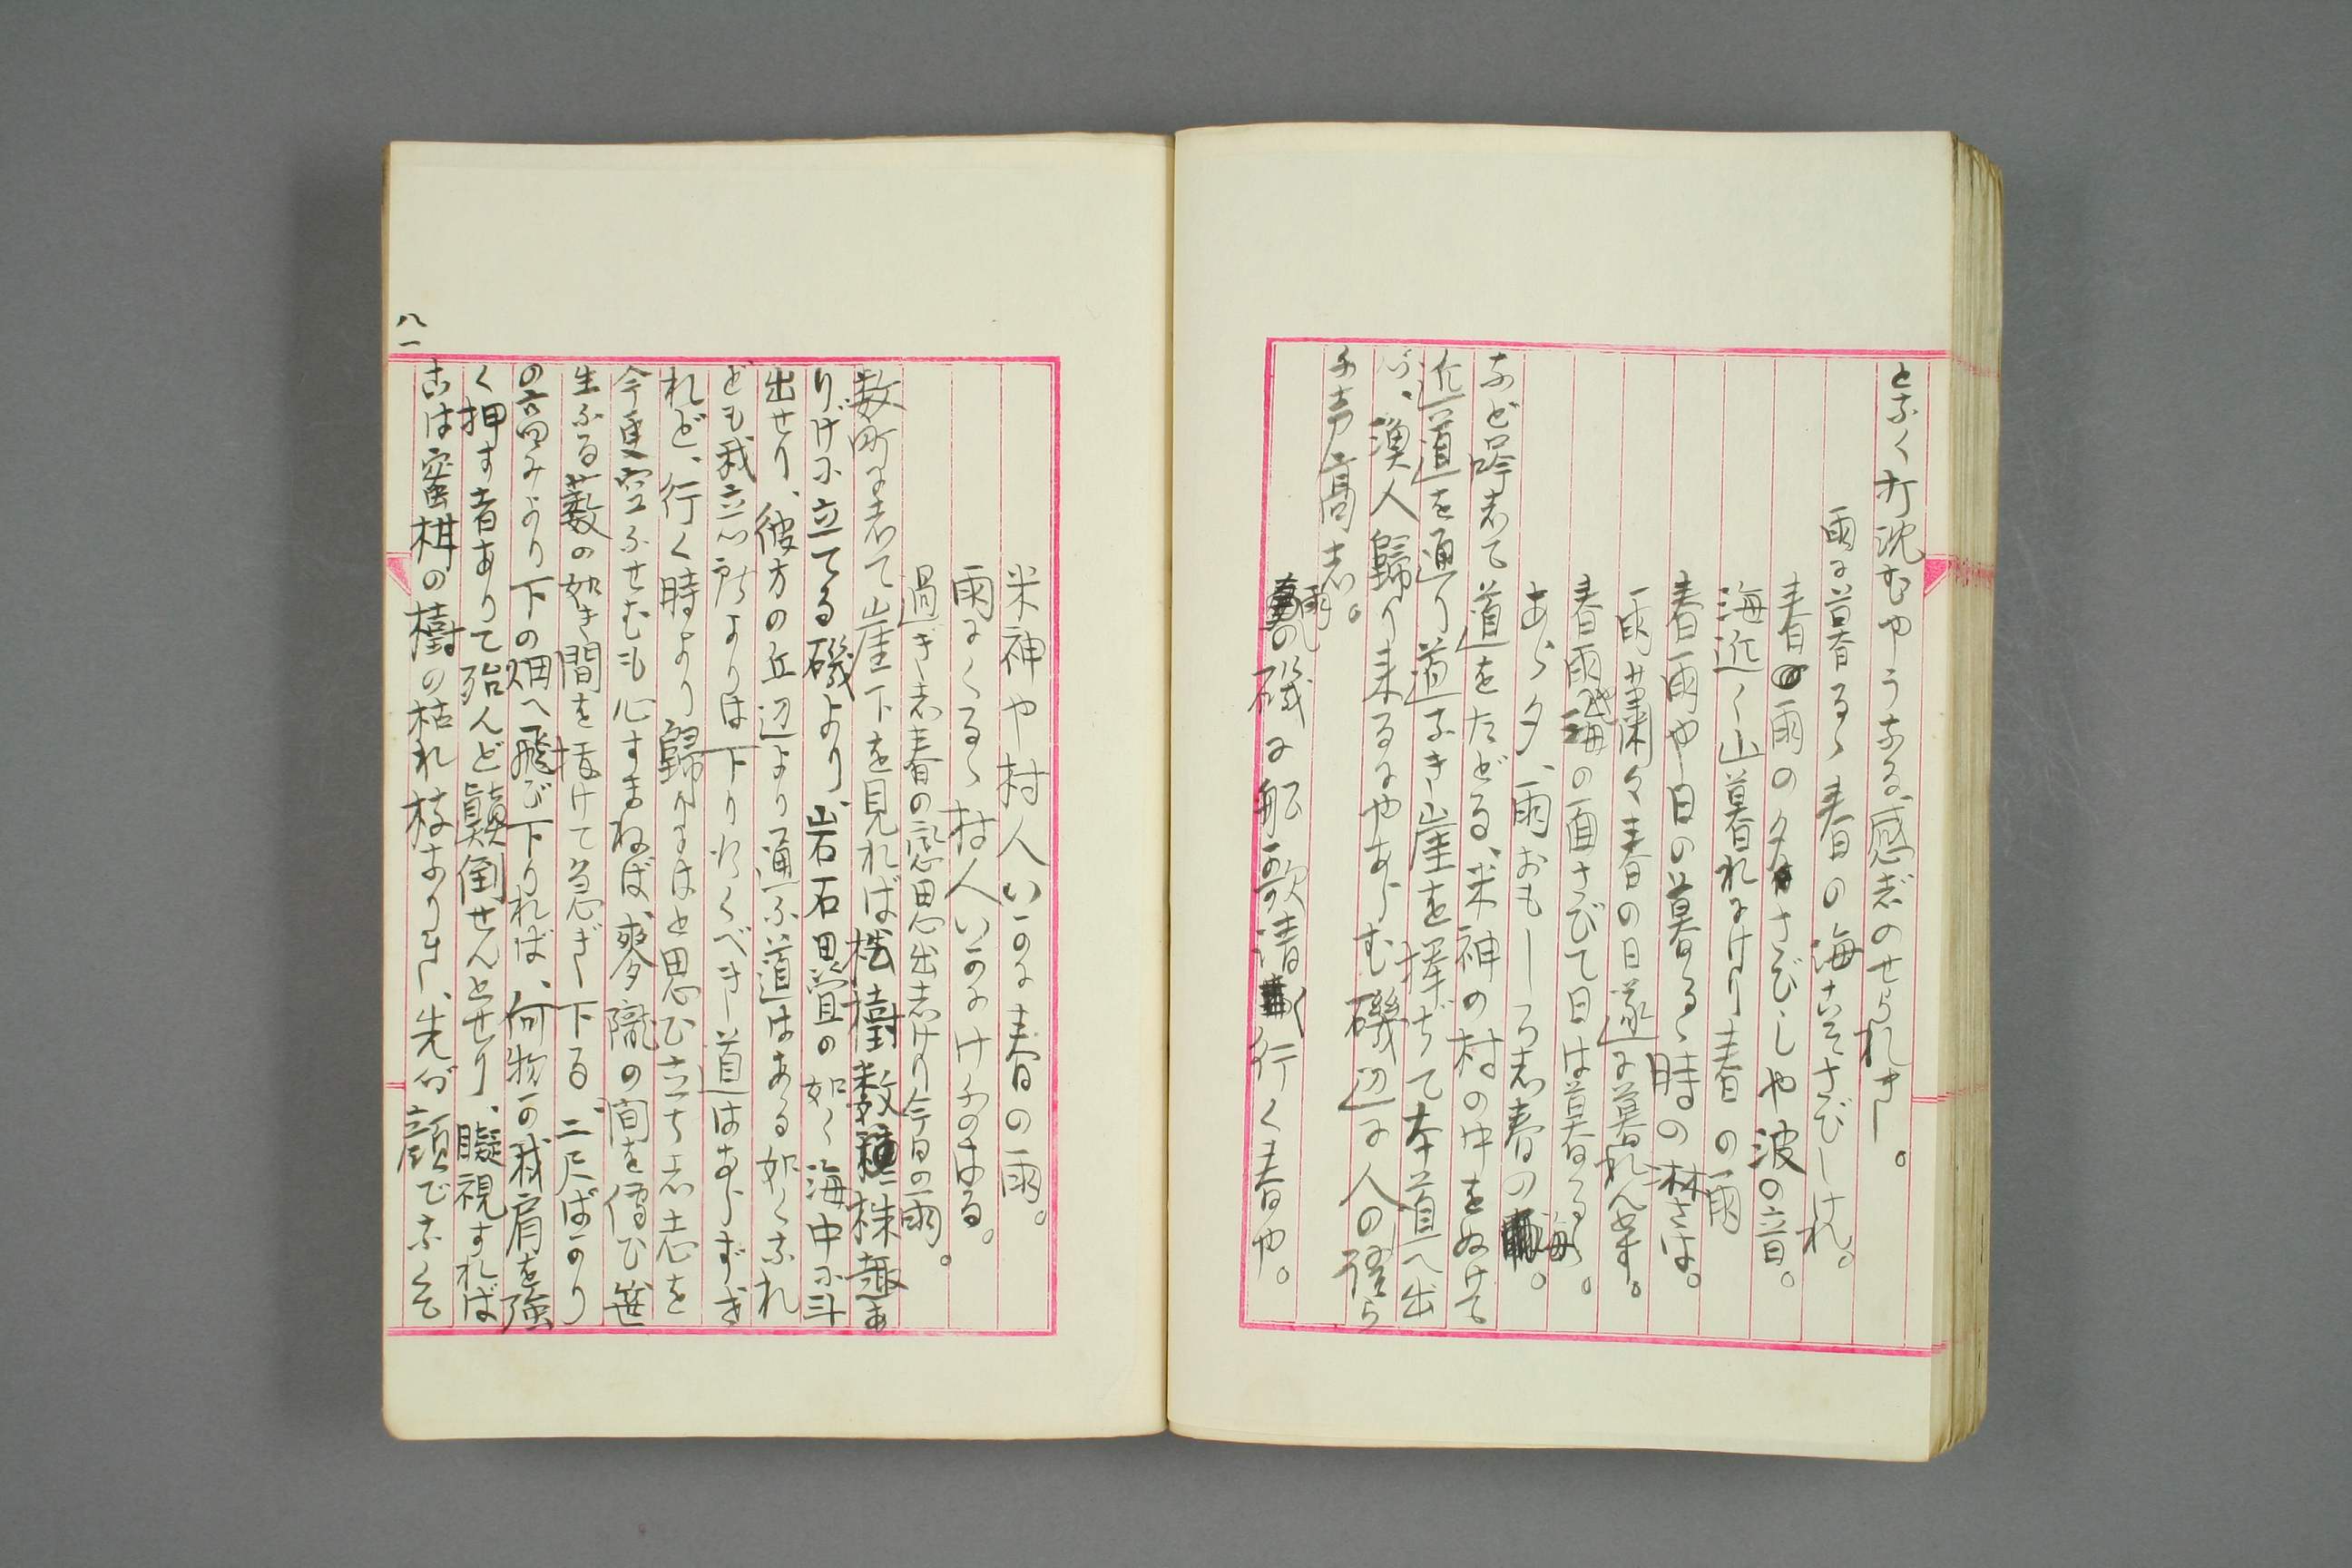 となく打沈むやうなる感じのせられき。
雨に暮るゝ春の海こそさびしけれ。
春雨の夕さびしや波の音。
海近く山暮れにけり春の雨
春雨や日の暮るゝ時の淋さは。
雨蕭々春の日遂に暮れんとす。
春雨海の面さびて日は暮るゝ。
あゝ夕、雨おもしろし春の海。
など吟して道をたどる、米神の村の中をぬけて
近道を通り道なき崖を攀ぢて本道へ出
づ、漁人歸り来るにやあらむ磯辺に人の語ら
ふ声高し。
雨の磯に船歌清く行く春や。
米神や村人いかに春の雨。
雨にくるゝ村人いかにけふのはる。
過ぎし春の記憶思出しけり今日の雨。
数町にして崖下を見れば松樹数株趣あ
りげに立てる磯より、岩石畳の如く海中に斗
出せり、彼方の丘辺より通ふ道はある如くなれ
ども我立つ所よりは下り行くべき道はあらずぎ
れど、行く時より歸りにはと思ひ立ちし志を
今更空ふせむも心すまねば、麥隴の間を傳ひ笹
生ふる藪の如き間を抜けて急ぎ下る、二尺ばかり
の高みより下の畑へ飛び下りれば、何物か我肩を強
く押す者ありて殆んど顛倒せんとせり、凝視すれば
こは蜜柑の樹の枯れ枝なりき、先づ頭でなくて
八一